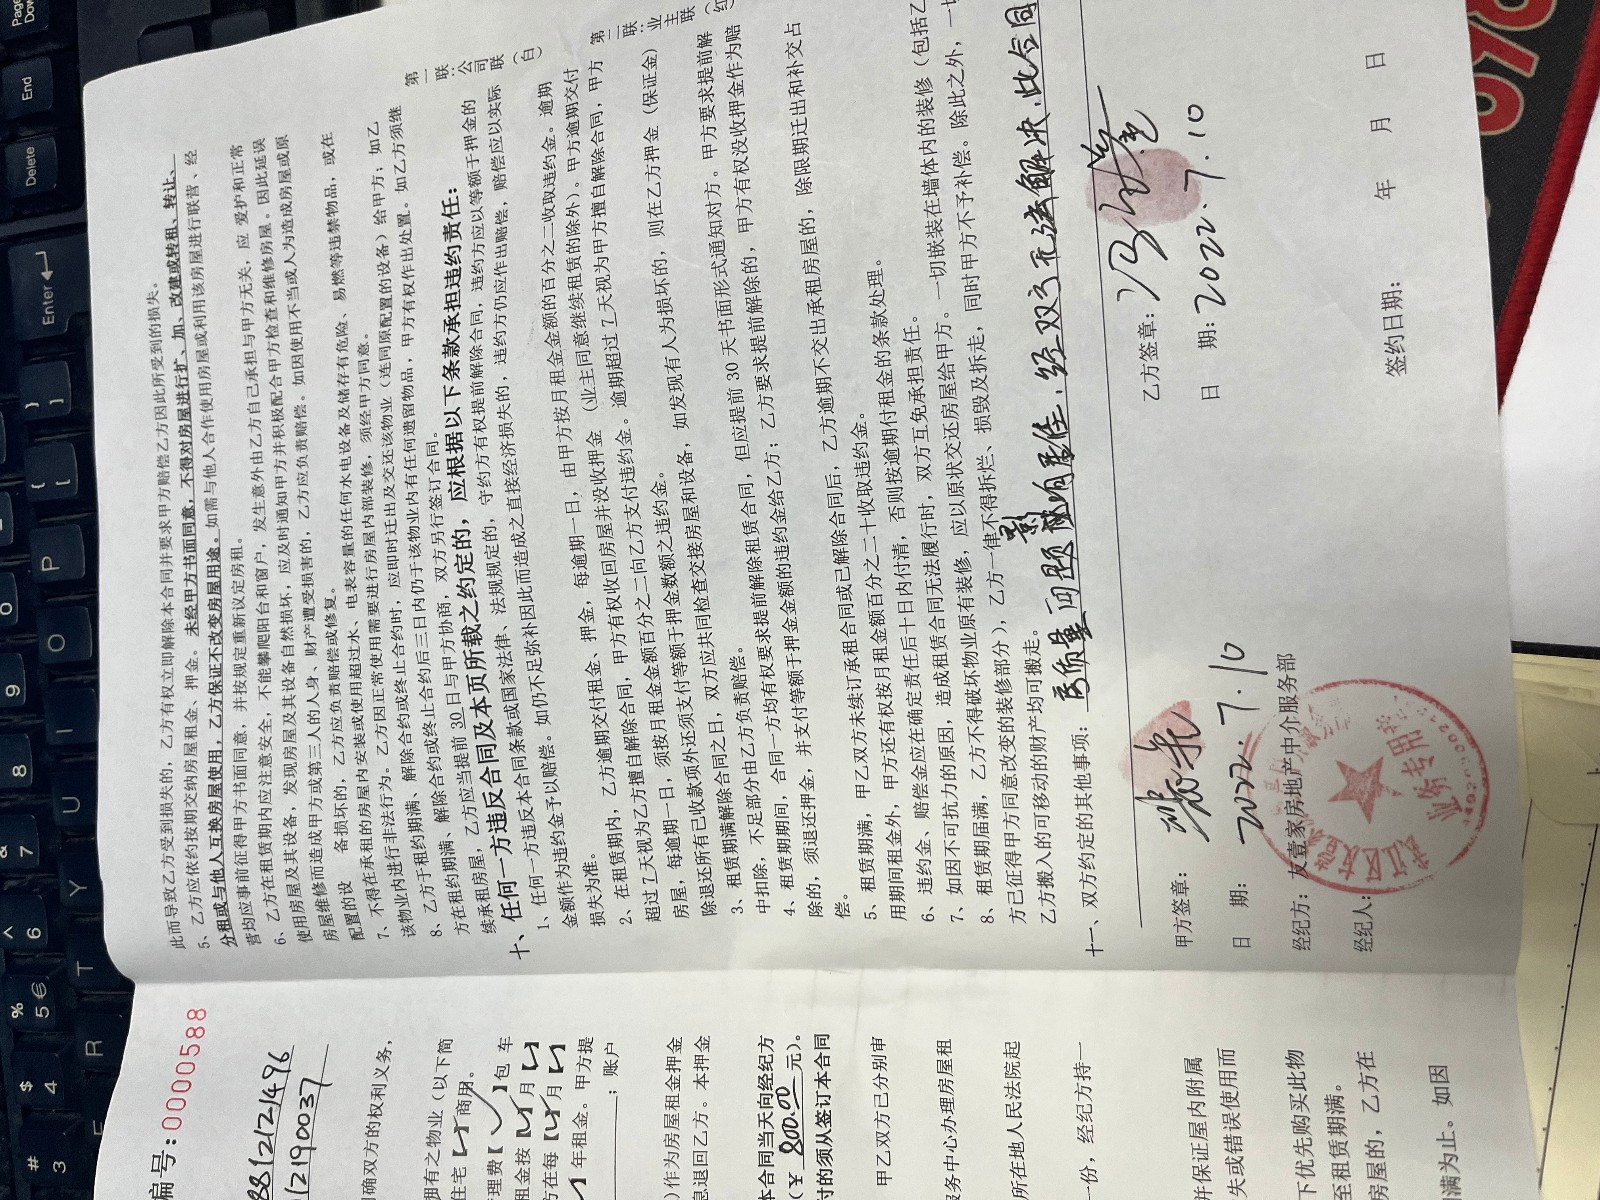 此而导致乙方受到损失的，乙方有权立即解除本合同并要求甲方赔偿乙方因此所受到的损失。
5、乙方应依约按期交纳房屋租金、押金。未经甲方书面同意，不得对房屋进行扩、加、改建或转租、转让、
分租或与他人互换房屋使用，乙方保证不改变房屋用途。如需与他人合作使用房屋或利用该房屋进行联营、经
营均应事前征得甲方书面同意，并按规定重新议定房租。
6、乙方在租赁期内应注意安全，不能攀爬阳台和窗户，发生意外由乙方自己承担与甲方无关，应 爱护和正常
使用房屋及其设备，发现房屋及其设备自然损坏，应及时通知甲方并积极配合甲方检查和维修房屋。因此延误
房屋维修而造成甲方或第三人的人身、财产遭受损害的，乙方应负责赔偿。如因使用不当或人为造成房屋或原
配置的设 各损坏的，乙方应负责赔偿或修复。
7、不得在承租的房屋内安装或使用超过水、电表容量的任何水电设备及储存有危险、易燃等违禁物品，或在
该物业内进行非法行为。乙方因正常使用需要进行房屋内部装修，须经甲方同意。
8、乙方于租约期满、解除合约或终止合约时，应即时迁出及交还该物业（连同原配置的设备）给甲方；如乙
方在租约期满、解除合约或终止合约后三日内仍于该物业内有任何遗留物品，甲方有权作出处置。如乙方须继
续承租房屋，乙方应当提前 30 日与甲方协商，双方另行签订合同。
十、任何一方违反合同及本页所载之约定的，应根据以下条款承担违约责任：
1、任何一方违反本合同条款或国家法律、法规规定的，守约方有权提前解除合同，违约方应以等额于押金的
金额作为违约金予以赔偿。如仍不足弥补因此而造成之直接经济损失的，违约方仍应作出赔偿，赔偿应以实际
损失为准。
2、在租赁期内，乙方逾期交付租金、押金，每逾期一日，由甲方按月租金金额的百分之二收取违约金。逾期
超过 7 天视为乙方擅自解除合同，甲方有权收回房屋并没收押金（业主同意继续租赁的除外）。甲方逾期交付
房屋，每逾期一日，须按月租金金额百分之二向乙方支付违约金。逾期超过 7 天视为甲方擅自解除合同，甲方
除退还所有已收款项外还须支付等额于押金数额之违约金。
3、租赁期满解除合同之日，双方应共同检查交接房屋和设备，如发现有人为损坏的，则在乙方押金（保证金）
中扣除，不足部分由乙方负责赔偿。
4、租赁期期间，合同一方均有权要求提前解除租赁合同，但应提前 30 天书面形式通知对方。甲方要求提前解
除的，须退还押金，并支付等额于押金金额的违约金给乙方；乙方要求提前解除的，甲方有权没收押金作为赔
偿。
5、租赁期满，甲乙双方未续订承租合同或已解除合同后，乙方逾期不交出承租房屋的，除限期迁出和补交占
用期间租金外，甲方还有权按月租金额百分之二十收取违约金。
6、违约金、赔偿金应在确定责任后十日内付清，否则按逾期付租金的条款处理。
7、如因不可抗力的原因，造成租赁合同无法履行时，双方互免承担责任。
8、租赁期届满，乙方不得破坏物业原有装修，应以原状交还房屋给甲方。一切嵌装在墙体内的装修（包括乙
方己征得甲方同意改变的装修部分），乙方一律不得拆烂、损毁及拆走，同时甲方不予补偿。除此之外，一切
乙方搬入的可移动的财产均可搬走。
十一、双方约定的其他事项：房质量问题影响居住，经双方无法解决，此合同
甲方签章：
乙方签章：
日 期：2022.7.10
日 期：2022.7.10
经纪方：友壹家房地产中介服务部
经纪人：
签约日期： 年 月 日
业务专用章
第一联：公司联（白）
第二联：业主联（红
编号：0000588
8812121496
12190037
确双方的权利义务，
拥有之物业（以下简
住宅【 】商用。
理费【 】包 车
租金按【 】月【
方在每【 】月【
年租金。甲方提
；账户
）作为房屋租金押金
息退回乙方。本押金
本合同当天向经纪方
（￥800.00元）。
付的须从签订本合同
甲乙双方已分别审
服务中心办理房屋租
所在地人民法院起
一份，经纪方持一
并保证屋内附属
失或错误使用而
下优先购买此物
至租赁期满。
房屋的，乙方在
满为止。如因
Page Down
End
Delete
Enter
} ]
{ [
P
O
I
U
Y
T
R
E
0
9
8
& 7
^ 6
% 5 €
$ 4
# 3